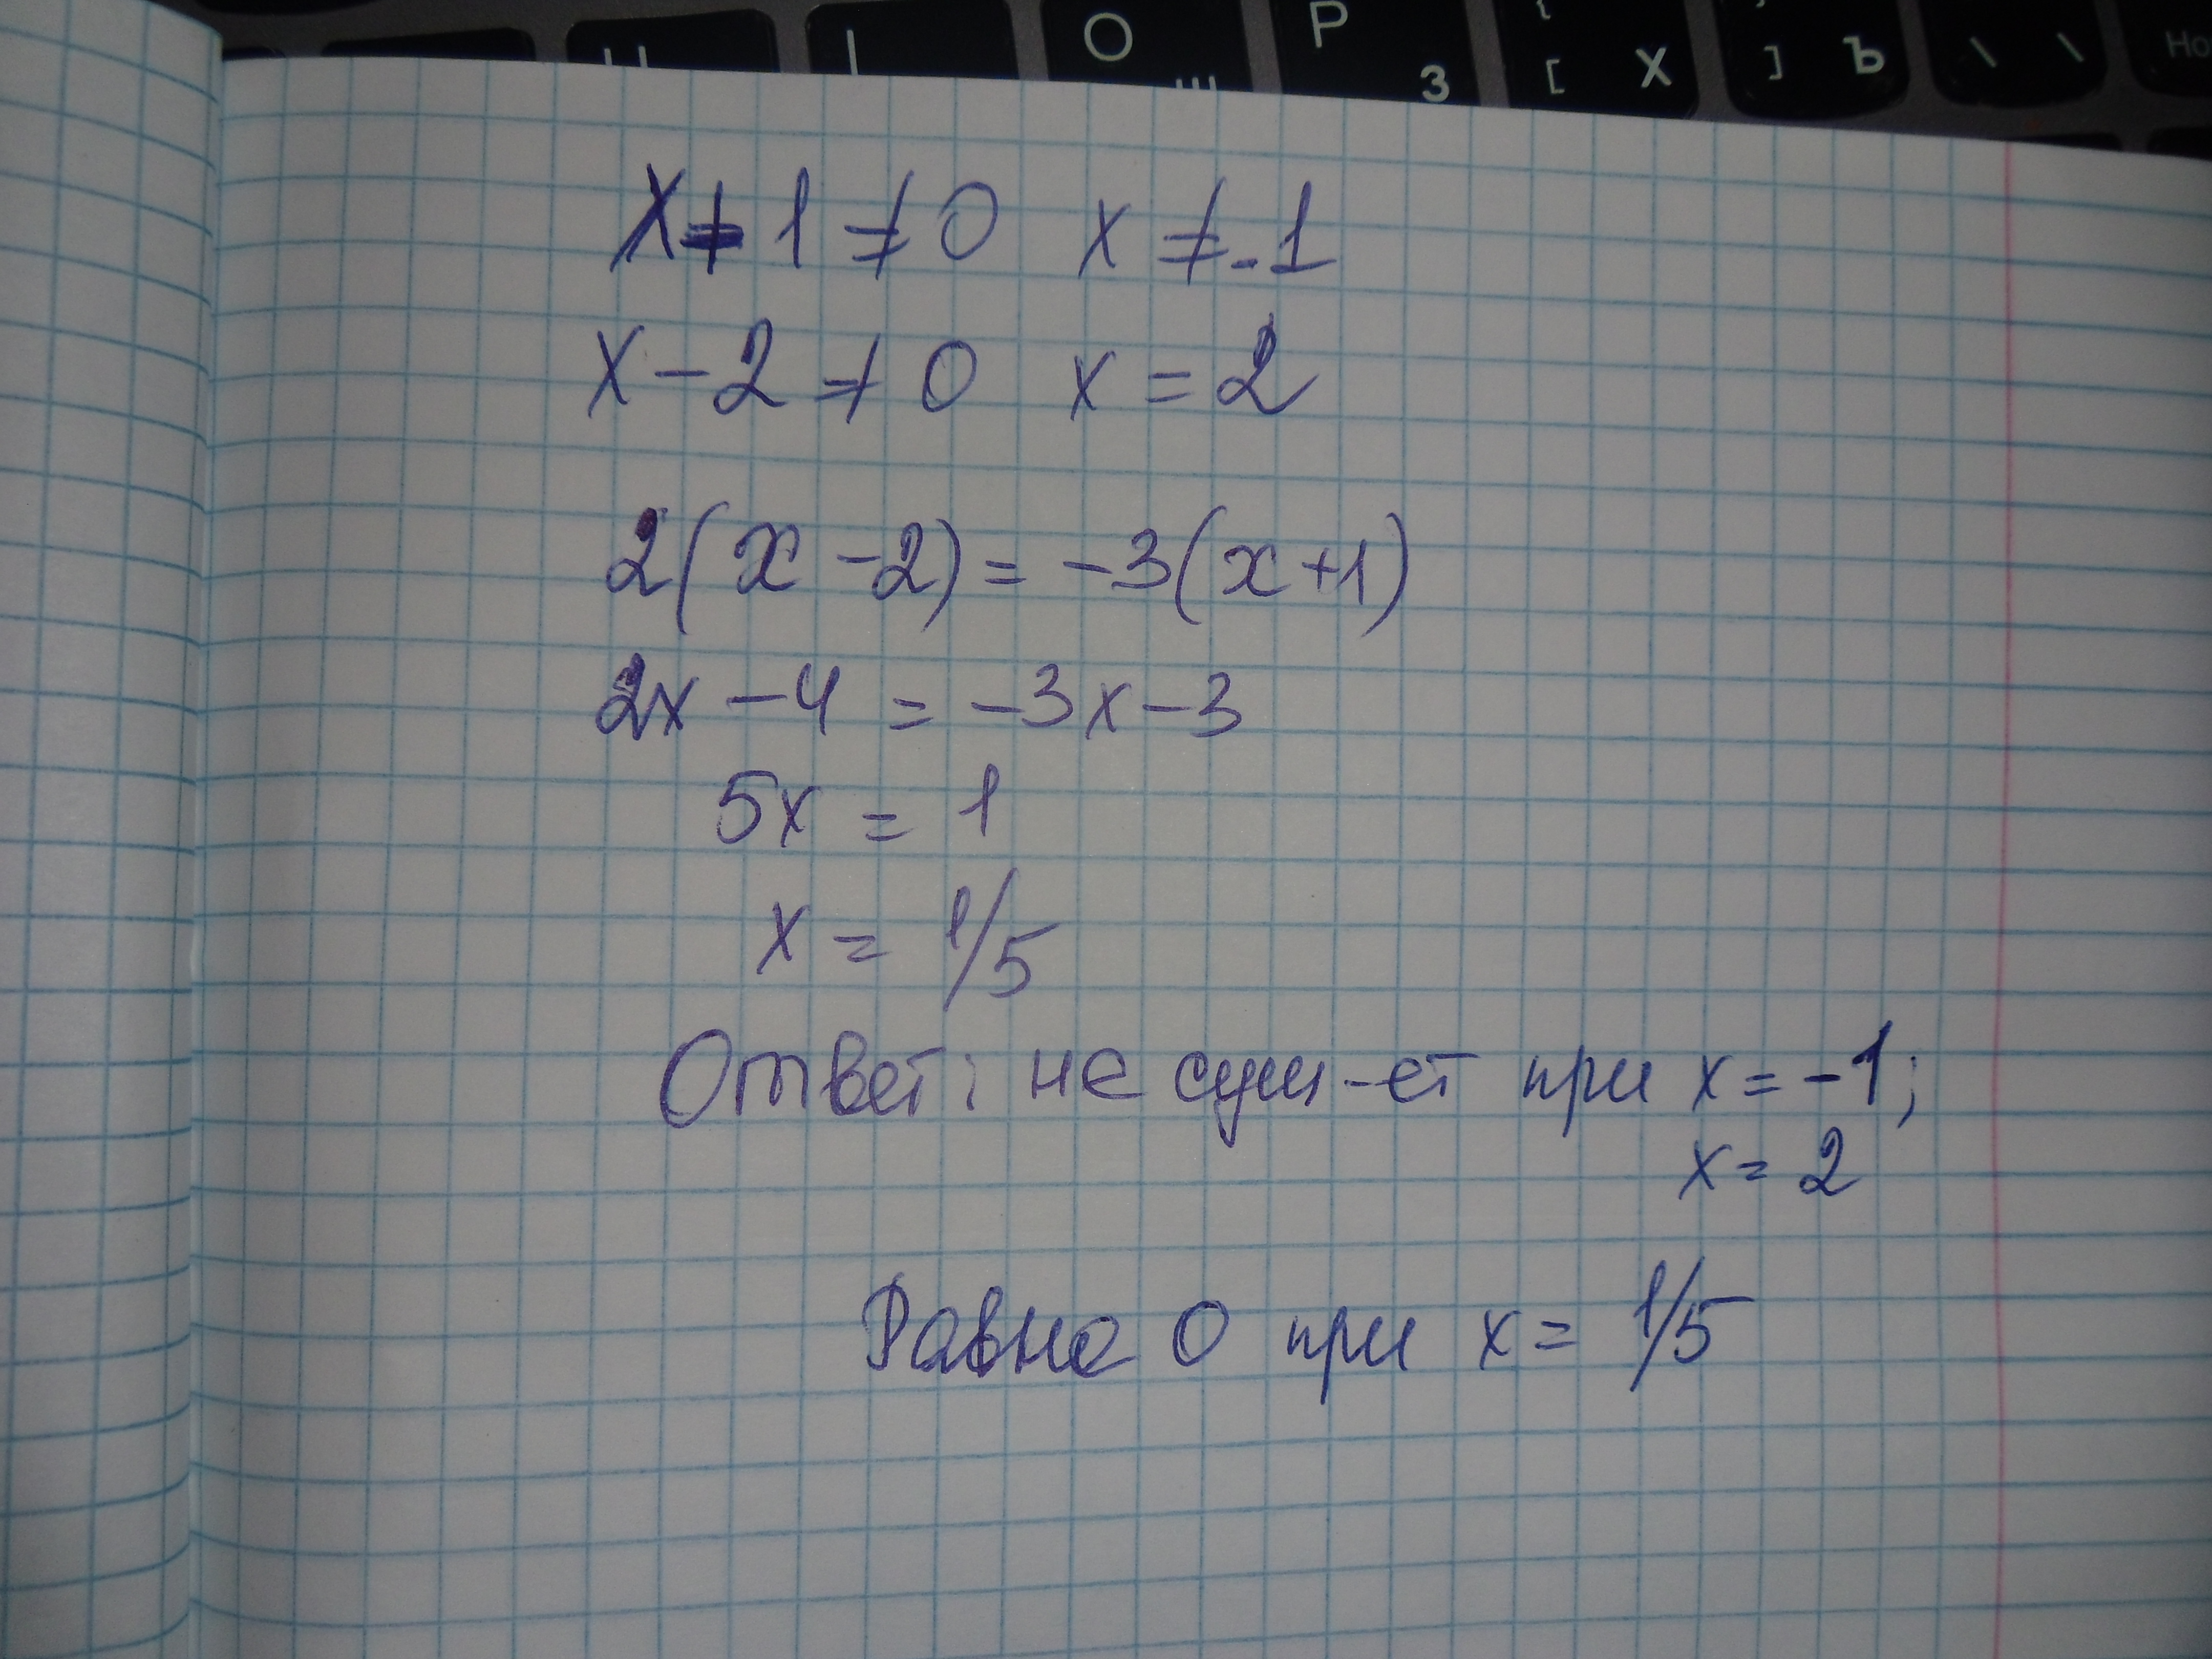 O
P
З
[
Х
]
Ъ
\
\
x+1≠0 x≠-1
x-2≠0 x=2
2(x-2)=-3(x+1)
2x-4=-3x-3
5x=1
x=1/5
Ответ: не сущ-ет при x=-1;
x=2
Равно 0 при x=1/5